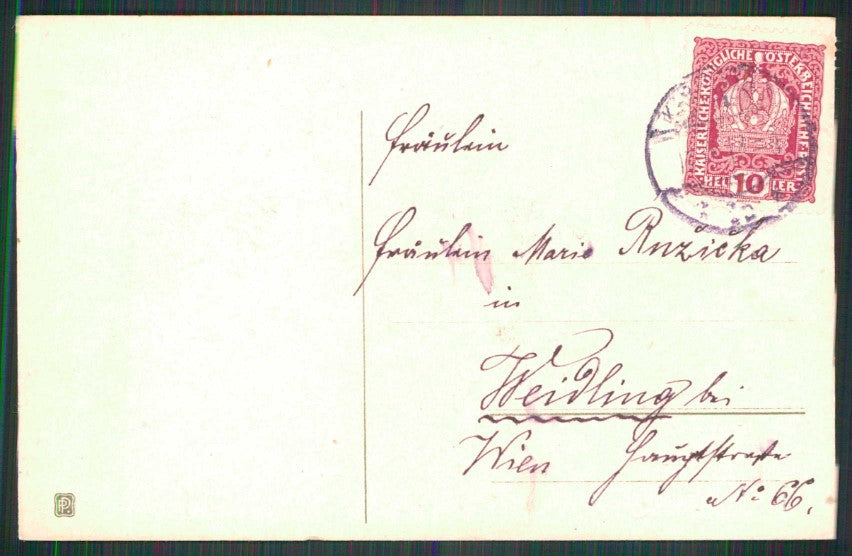 KAISERLICHE·KÖNIGLICHE ÖSTERREICHISCHE POST
HELLER
10
Fräulein
Fräulein Marie Ruzicka
in
Weidling bei
Wien Hauptstraße
No: 66.
PP